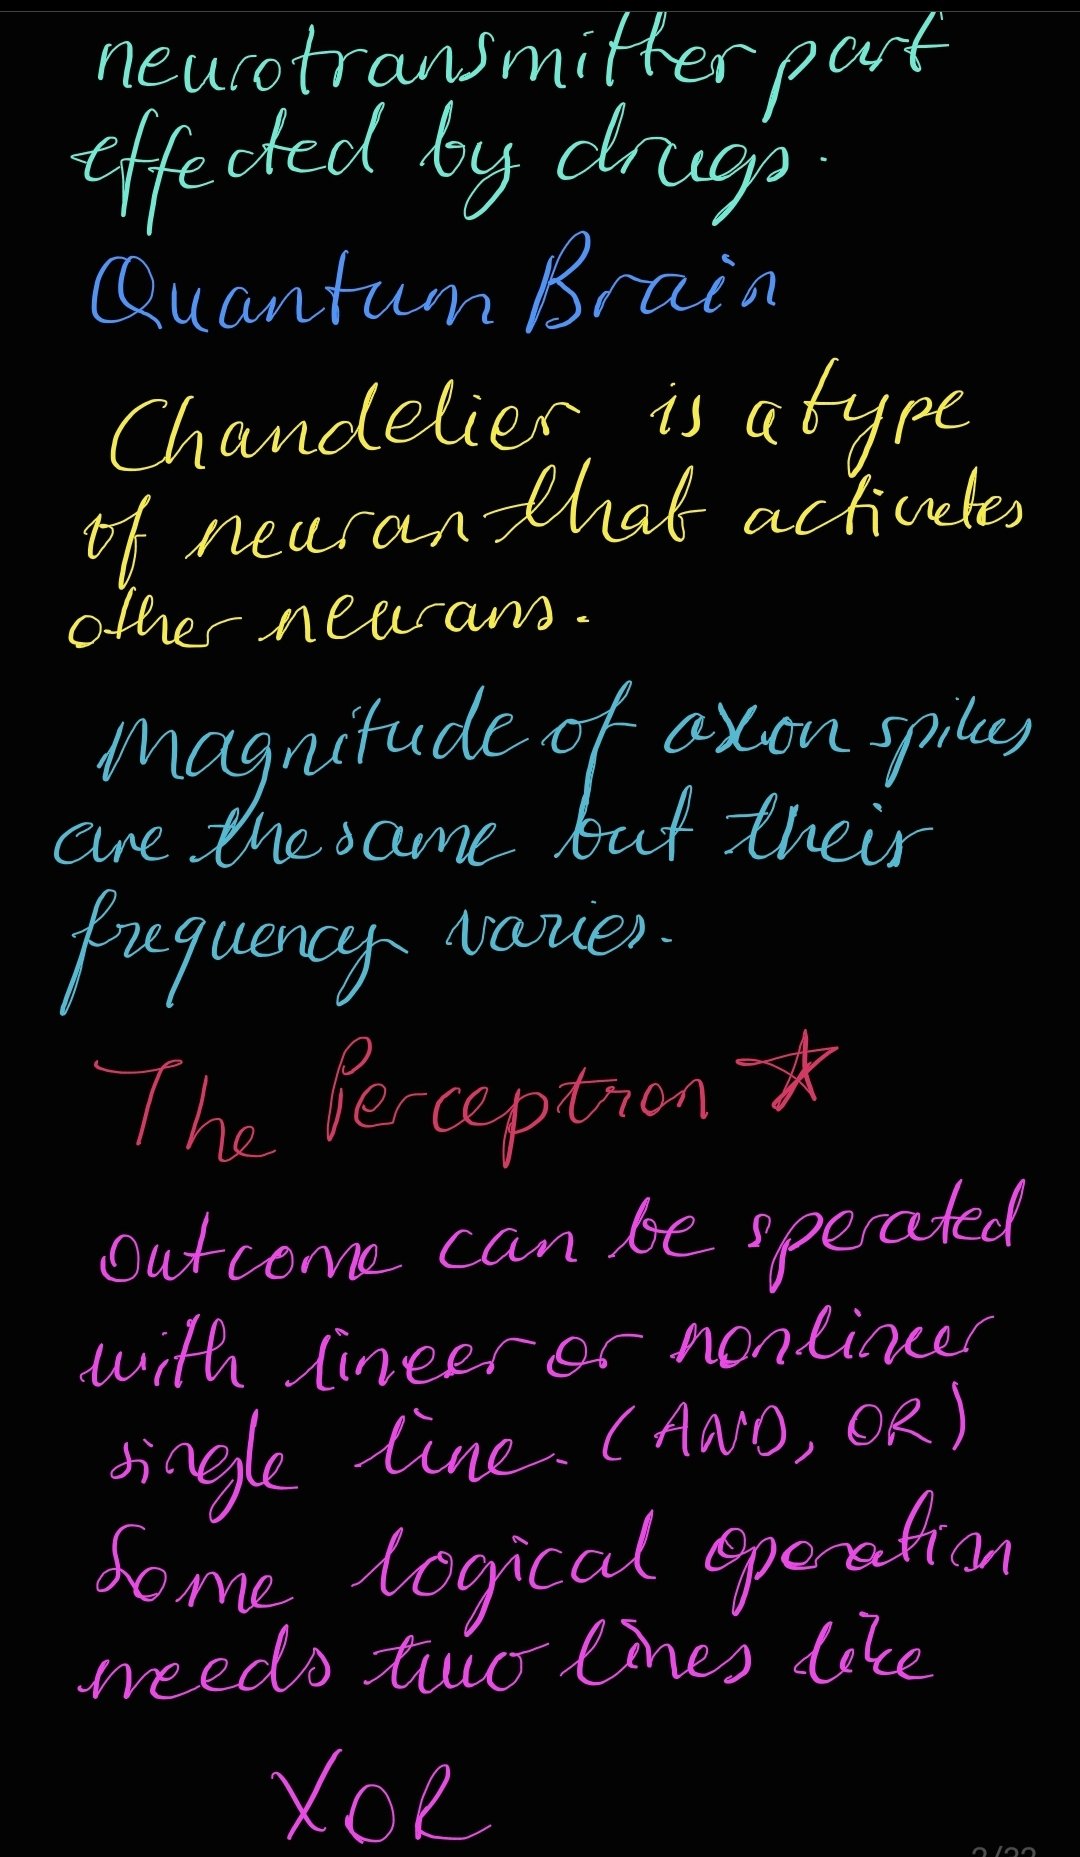 neurotransmitter part
effected by drugs.
Quantum Brain
Chandelier is a type
of neuran that activates
other neurans.
Magnitude of axon spikes
are the same but their
frequency varies.
The Perceptron
outcome can be sperated
with lineer or nonlineer
single line. (AND, OR)
Some logical operation
needs two lines like
XOR